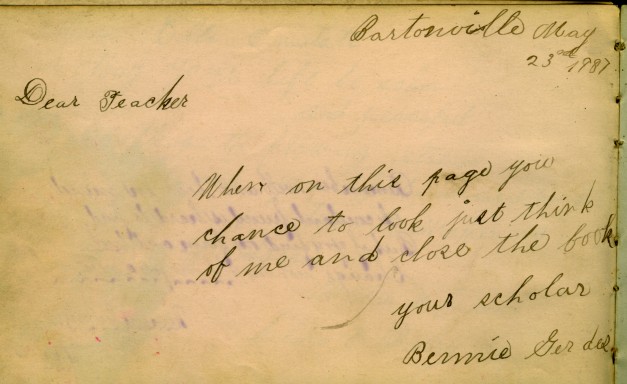 Bartonville May
23rd 1987
Dear Teacher
When on this page you
chance to look just think
of me and close the book
your scholar
Bennie Gerdes